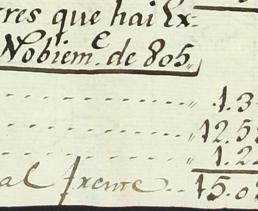 tres que hai Ex=
Nobiem.e de 805,,
1.3
12.5
1.2
al frente 15.0